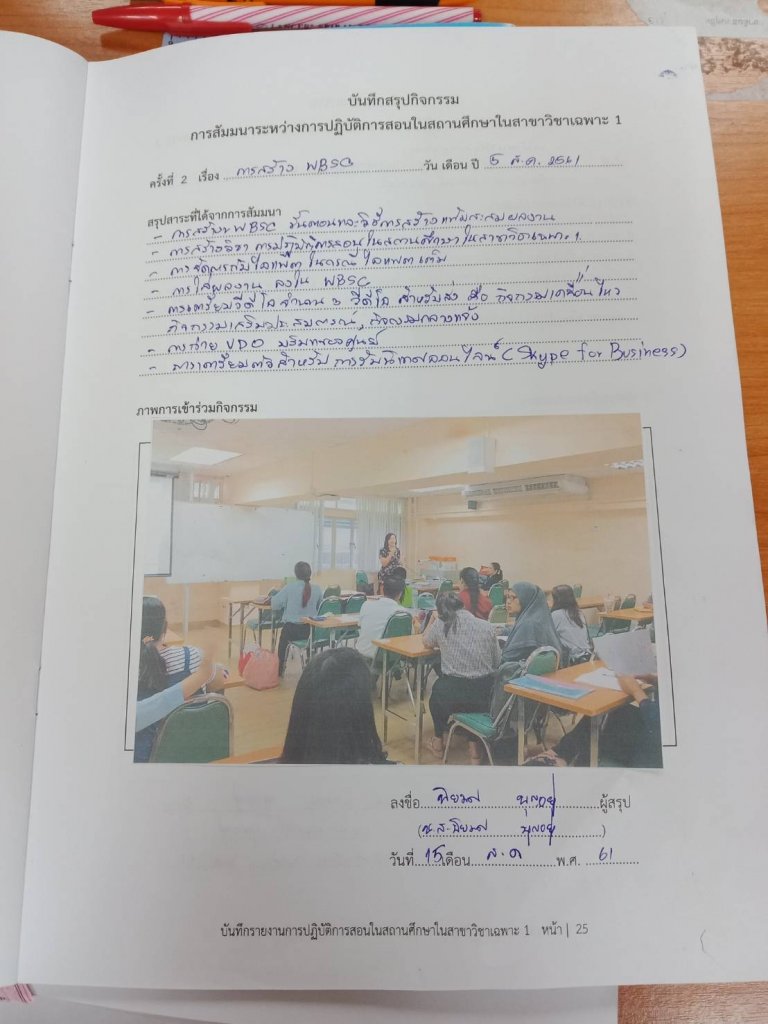 บันทึกสรุปกิจกรรม
การสัมมนาระหว่างการปฏิบัติการสอนในสถานศึกษาในสาขาวิชาเฉพาะ 1
ครั้งที่ 2 เรื่อง การสร้าง WBSC วัน เดือน ปี 5 ส.ค. 2561
สรุปสาระที่ได้จากการสัมมนา
- การสร้าง WBSC ขั้นตอนและวิธีการสร้างแฟ้มสะสมผลงาน
- การสร้างวิชา การปฏิบัติการสอนในสถานศึกษาในสาขาวิชาเฉพาะ 1
- การจัดการกับไดเแฟ้ม ในกรณี เต็ม
- การใส่ผลงาน ลงใน WBSC
- การเตรียมวีดีโอจำนวน 3 วีดีโอ สำหรับส่ง คือ กิจกรรมเคลื่อนไหว
กิจกรรมเสริมประสบการณ์, กิจกรรมกลางแจ้ง
- การถ่าย VDO
- การเตรียมตัวสำหรับ การรับนิเทศออนไลน์ (Skype for Business)
ภาพการเข้าร่วมกิจกรรม
ลงชื่อ ผู้สรุป
(น.ส. )
วันที่ 15 เดือน ส.ค พ.ศ. 61
บันทึกรายงานการปฏิบัติการสอนในสถานศึกษาในสาขาวิชาเฉพาะ 1 หน้า | 25